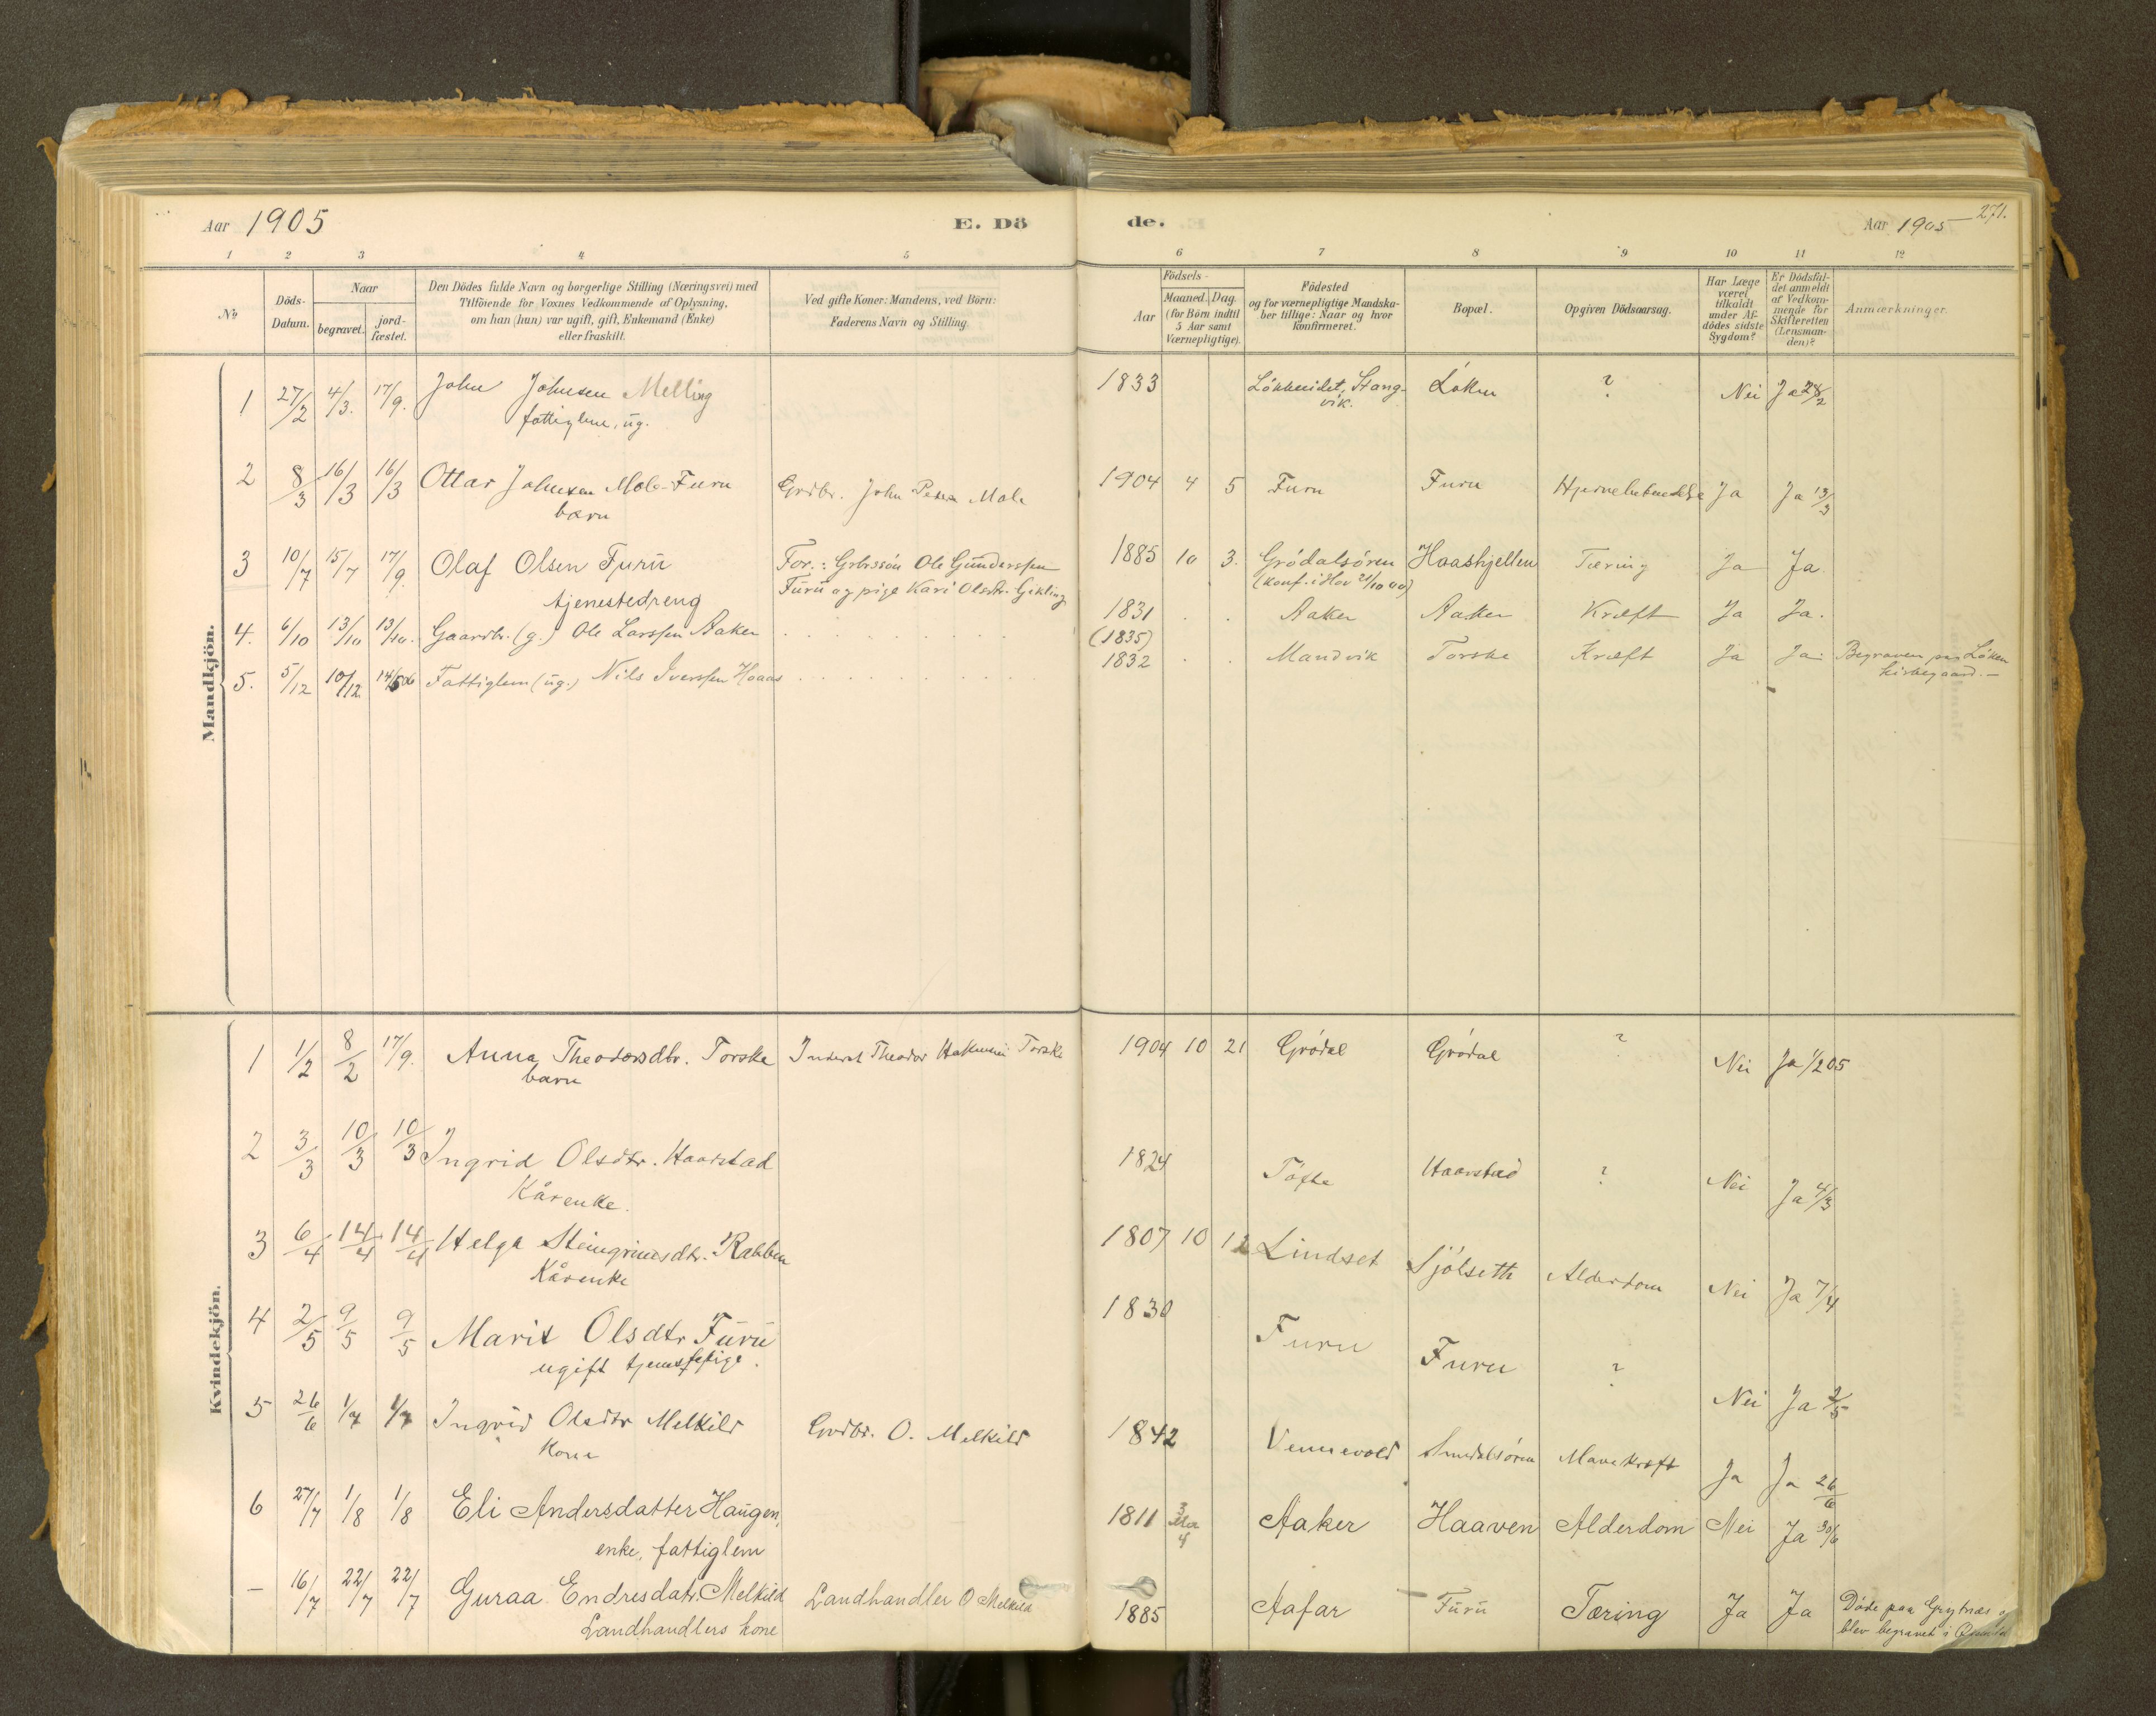 Aar 1905 E. Dö
de. Aar 1905 271.
1 2 3 4 5 6 7 8 9 10 11 12
No
Döds-
Datum.
Naar
begravet.
jord-
fæstet.
Den Dödes fulde Navn og borgerlige Stilling (Næringsvei) med
Tilföiende for Voxnes Vedkommende af Oplysning,
om han (hun) var ugift, gift, Enkemand (Enke)
eller fraskilt.
Ved gifte Koner: Mandens, ved Börn:
Faderens Navn og Stilling.
Födsels-
Aar
Maaned. Dag.
(for Börn indtil
5 Aar samt
Værnepligtige).
Födested
og for værnepligtige Mandska-
ber tillige: Naar og hvor
konfirmeret.
Bopæl.
Opgiven Dödsaarsag.
Har Læge
været
tilkaldt
under Af-
dödes sidste
Sygdom?
Er Dödsfal-
det anmeldt
af Vedkom-
mende for
Skifteretten
(Lensman-
den)?
Anmærkninger.
Mandkjön.
1 27/2 4/3. 17/9. John Johnsen Melling 1833 Løkkeidet, Stang- Løken ? Nei Ja 28/2
fattiglem, ug. vik.
2 8/3 16/3 16/3 Ottar Johnsen Mole-Furu Grdbr. John Peders Mole 1904 4 5 Furu Furu Hjernebetændelse Ja Ja 13/3
barn
3 10/7 15/7 17/9. Olaf Olsen Furu For.: Grbrssön Ole Gunderssen 1885 10 3. Grödalsören Haashjellen Tæring Ja Ja
tjenestedreng Furu og pige Kari Olsdtr. Gikling (konf. i Hov 21/10 00)
4. 6/10 13/10 13/10. Gaardbr. (g.) Ole Larssen Aaker 1831 Aaker Aaker Kræft Ja Ja.
(1835)
5. 5/12 10/12. 14/5 06 Fattiglem (ug.) Nils Iverssen Hoaas 1832 Mandvik Torske Kræft Ja Ja. Begraven paa Løken
kirkegaard.—
Kvindekjön.
1 1/2 8/2 17/9. Anna Theodorsdtr. Torske Inderst Theodor Torske 1904 10 21 Grödal Grödal ? Nei Ja 1/2 05
barn
2 3/3 10/3 10/3 Ingrid Olsdtr. Haarstad 1824 Töfte Haarstad ? Nei Ja 4/3
Kårenke.
3 6/4 14/4 14/4 Helga Steingrimsdtr. Rabben 1807 10 12 Lindset Sjölseth Alderdom Nei Ja 7/4
Kårenke
4 2/5 9/5 9/5 Marit Olsdtr Furu 1830 Furu Furu ? Nei Ja 2/5
ugift tjenestepige.
5 26/6 1/7 1/7 Ingrid Olsdtr Melkild Grdbr. O. Melkild 1842 Vennevold Sundalsören Mavekræft Ja Ja 26/6
Kone
6 27/7 1/8 1/8 Eli Andersdatter Haugen, 1811 Aaker Haaven Alderdom Nei Ja 30/6
enke, fattiglem
— 16/7 22/7 22/7 Guraa Endresdatr. Melkild Landhandler O Melkild 1885 Aafar Furu Tæring Ja Ja Döde paa Grytnæs
Landhandlers kone blev begravet i